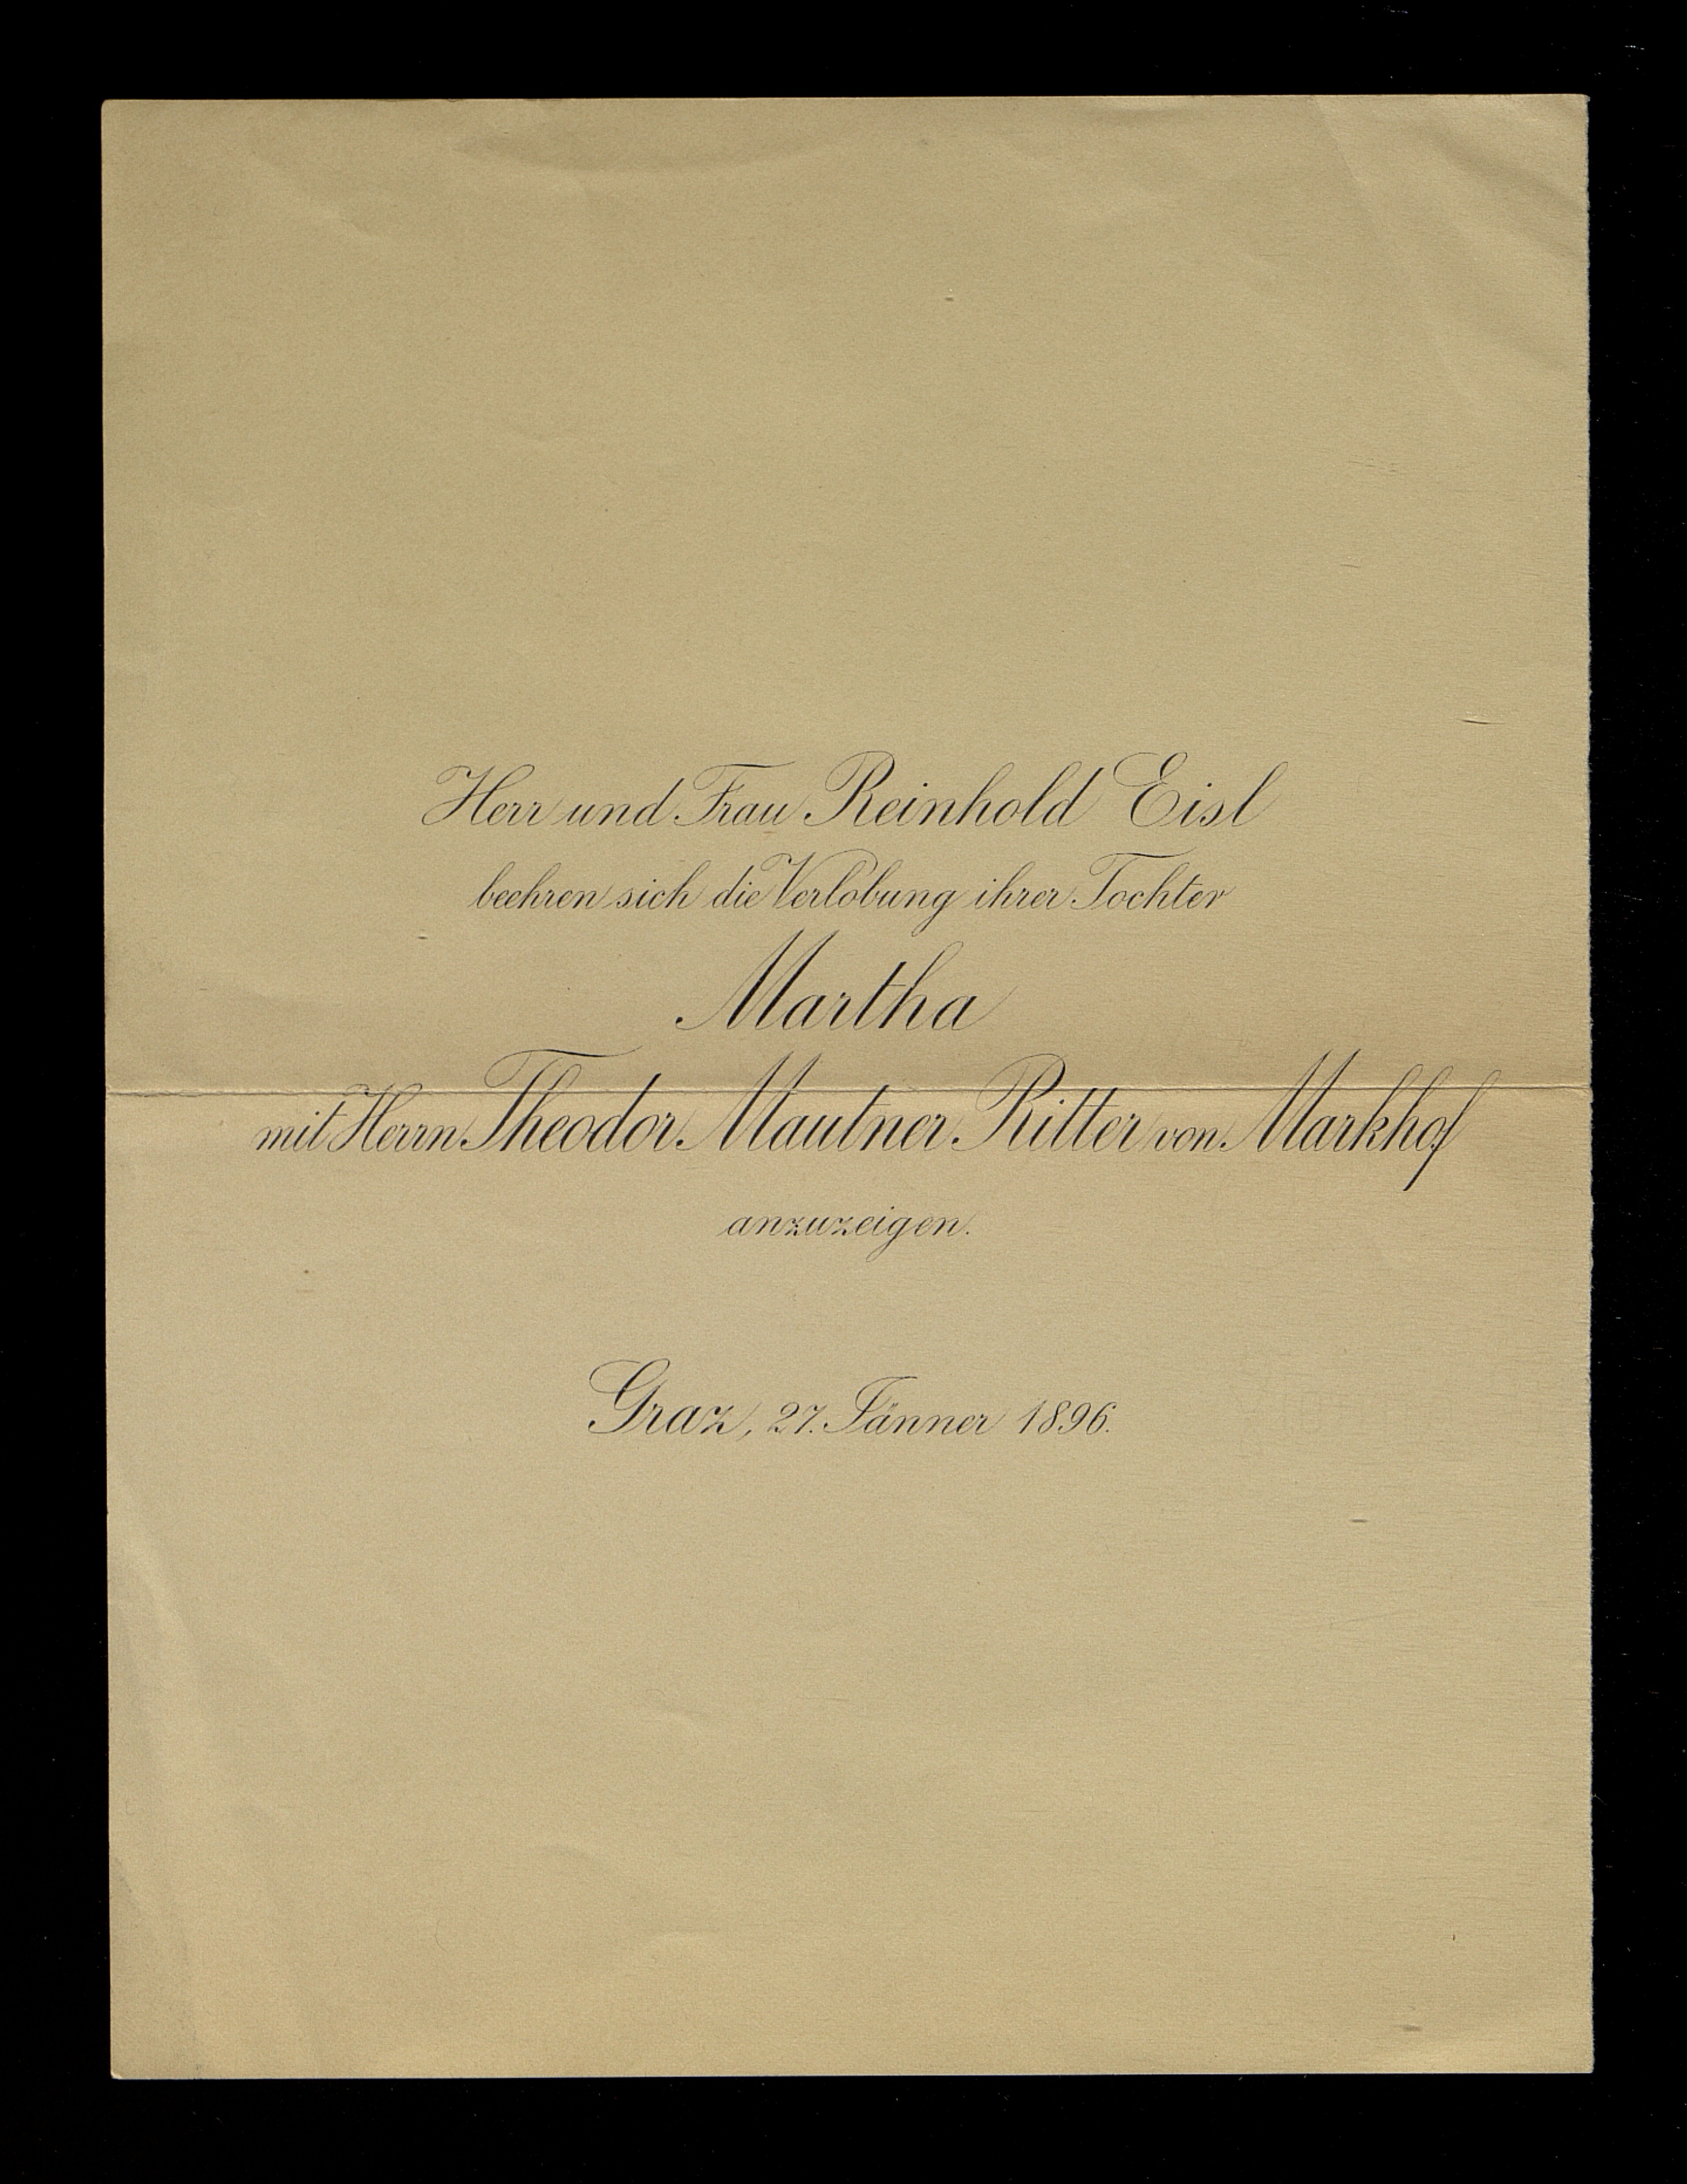 Herr und Frau Reinhold Eisl
beehren sich die Verlobung ihrer Tochter
Martha
mit Herrn Theodor Mautner Ritter von Markhof
anzuzeigen.
Graz, 27. Jänner 1896.